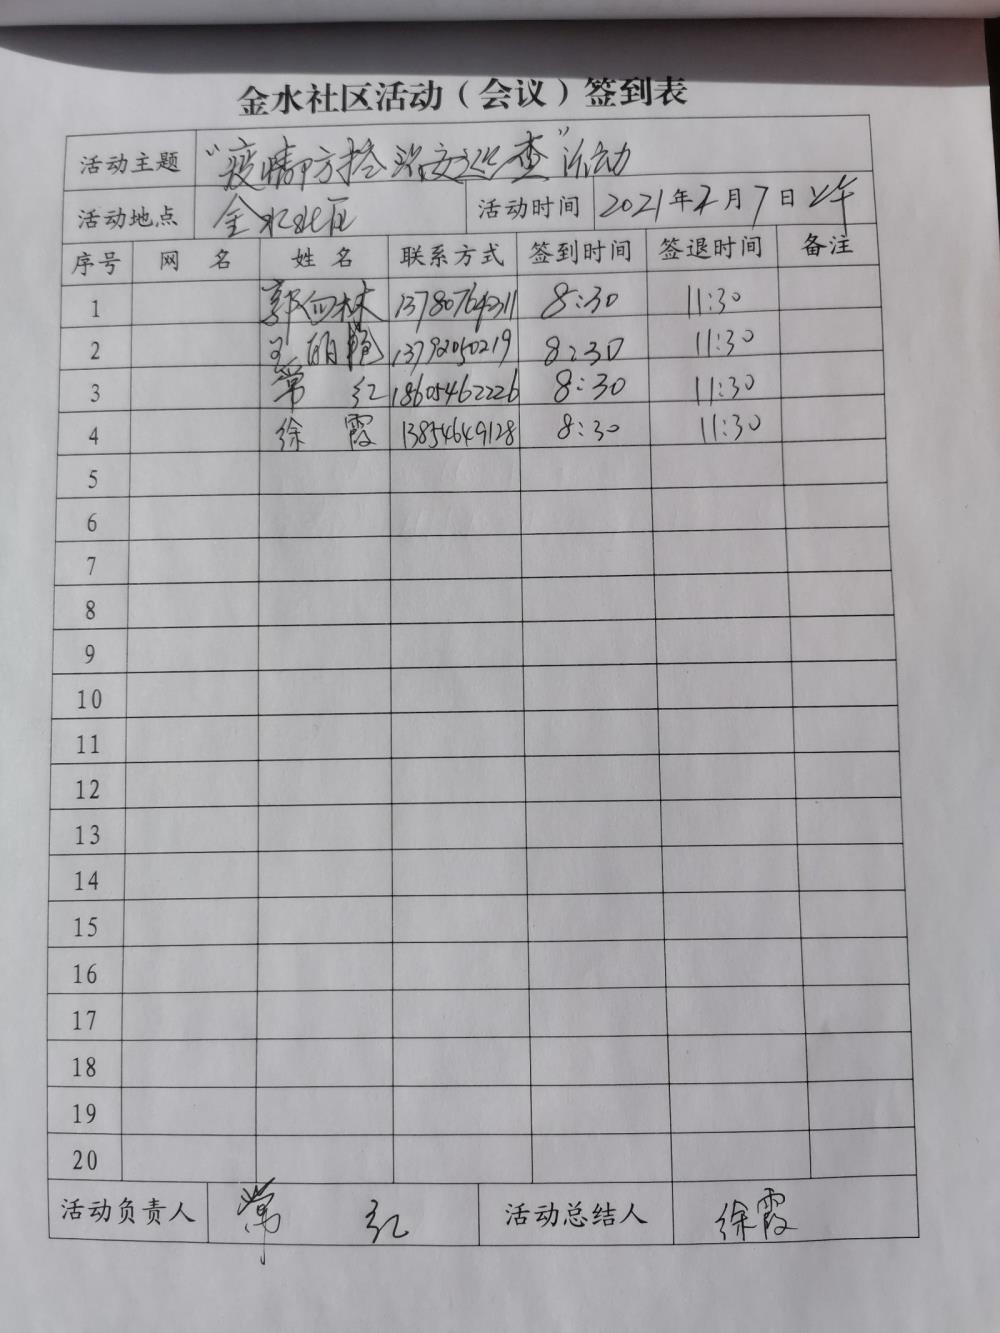 金水社区活动（会议）签到表
活动主题 “疫情防控 治安巡查”活动
活动地点 金水社区 活动时间 2021年2月7日上午
序号 网名 姓名 联系方式 签到时间 签退时间 备注
1 郭向林 13780764311 8:30 11:30
2 王明艳 13792050219 8:30 11:30
3 常红 18605462226 8:30 11:30
4 徐霞 13854649128 8:30 11:30
5
6
7
8
9
10
11
12
13
14
15
16
17
18
19
20
活动负责人 常红 活动总结人 徐霞